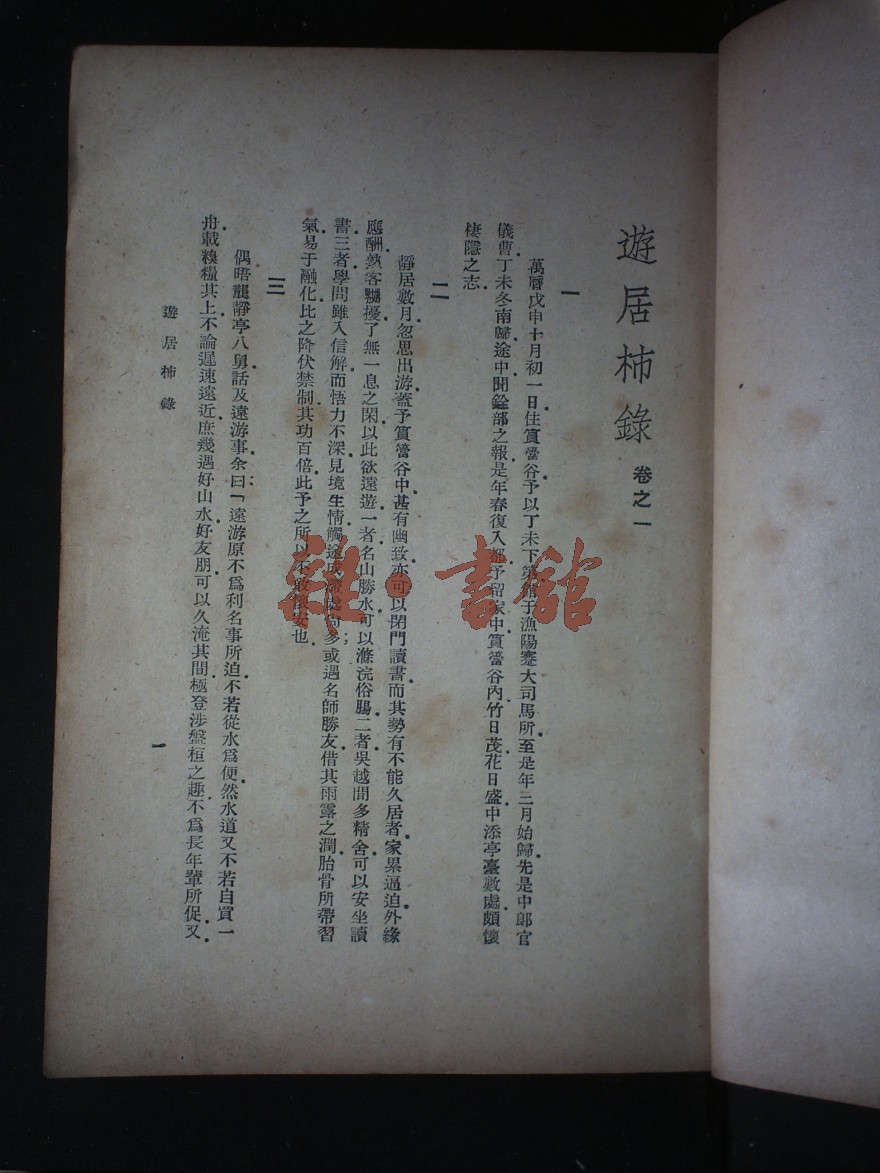 遊居柿錄 卷之一
一
萬曆戊申十月初一日住篔簹谷予以丁未下第館于漁陽蹇大司馬所至是年三月始歸先是中郎官
儀曹丁未冬南歸途中聞銓部之報是年春復入都予留家中篔簹谷內竹日茂花日盛中添亭臺數處頗懷
棲隱之志
二
靜居數月忽思出游蓋予篔簹谷中甚有幽致亦可以閉門讀書而其勢有不能久居者家累逼迫外緣
應酬熟客嬲擾了無一息之閑以此欲遠遊一者名山勝水可以滌浣俗腸二者吳越間多精舍可以安坐讀
書三者學問雖入信解而悟力不深見境生情觸途成滯處尚多或遇名師勝友借其雨露之潤胎骨所帶習
氣易于融化比之降伏禁制其功百倍此予之所以不敢懷安也
三
偶晤龔靜亭八舅話及遠游事余曰「遠游原不爲利名事所迫不若從水爲便然水道又不若自買一
舟載糗糧其上不論遲速遠近庶幾遇好山水好友朋可以久淹其間極登涉盤桓之趣不爲長年輩所促又
遊居柿錄
一
雜·書館